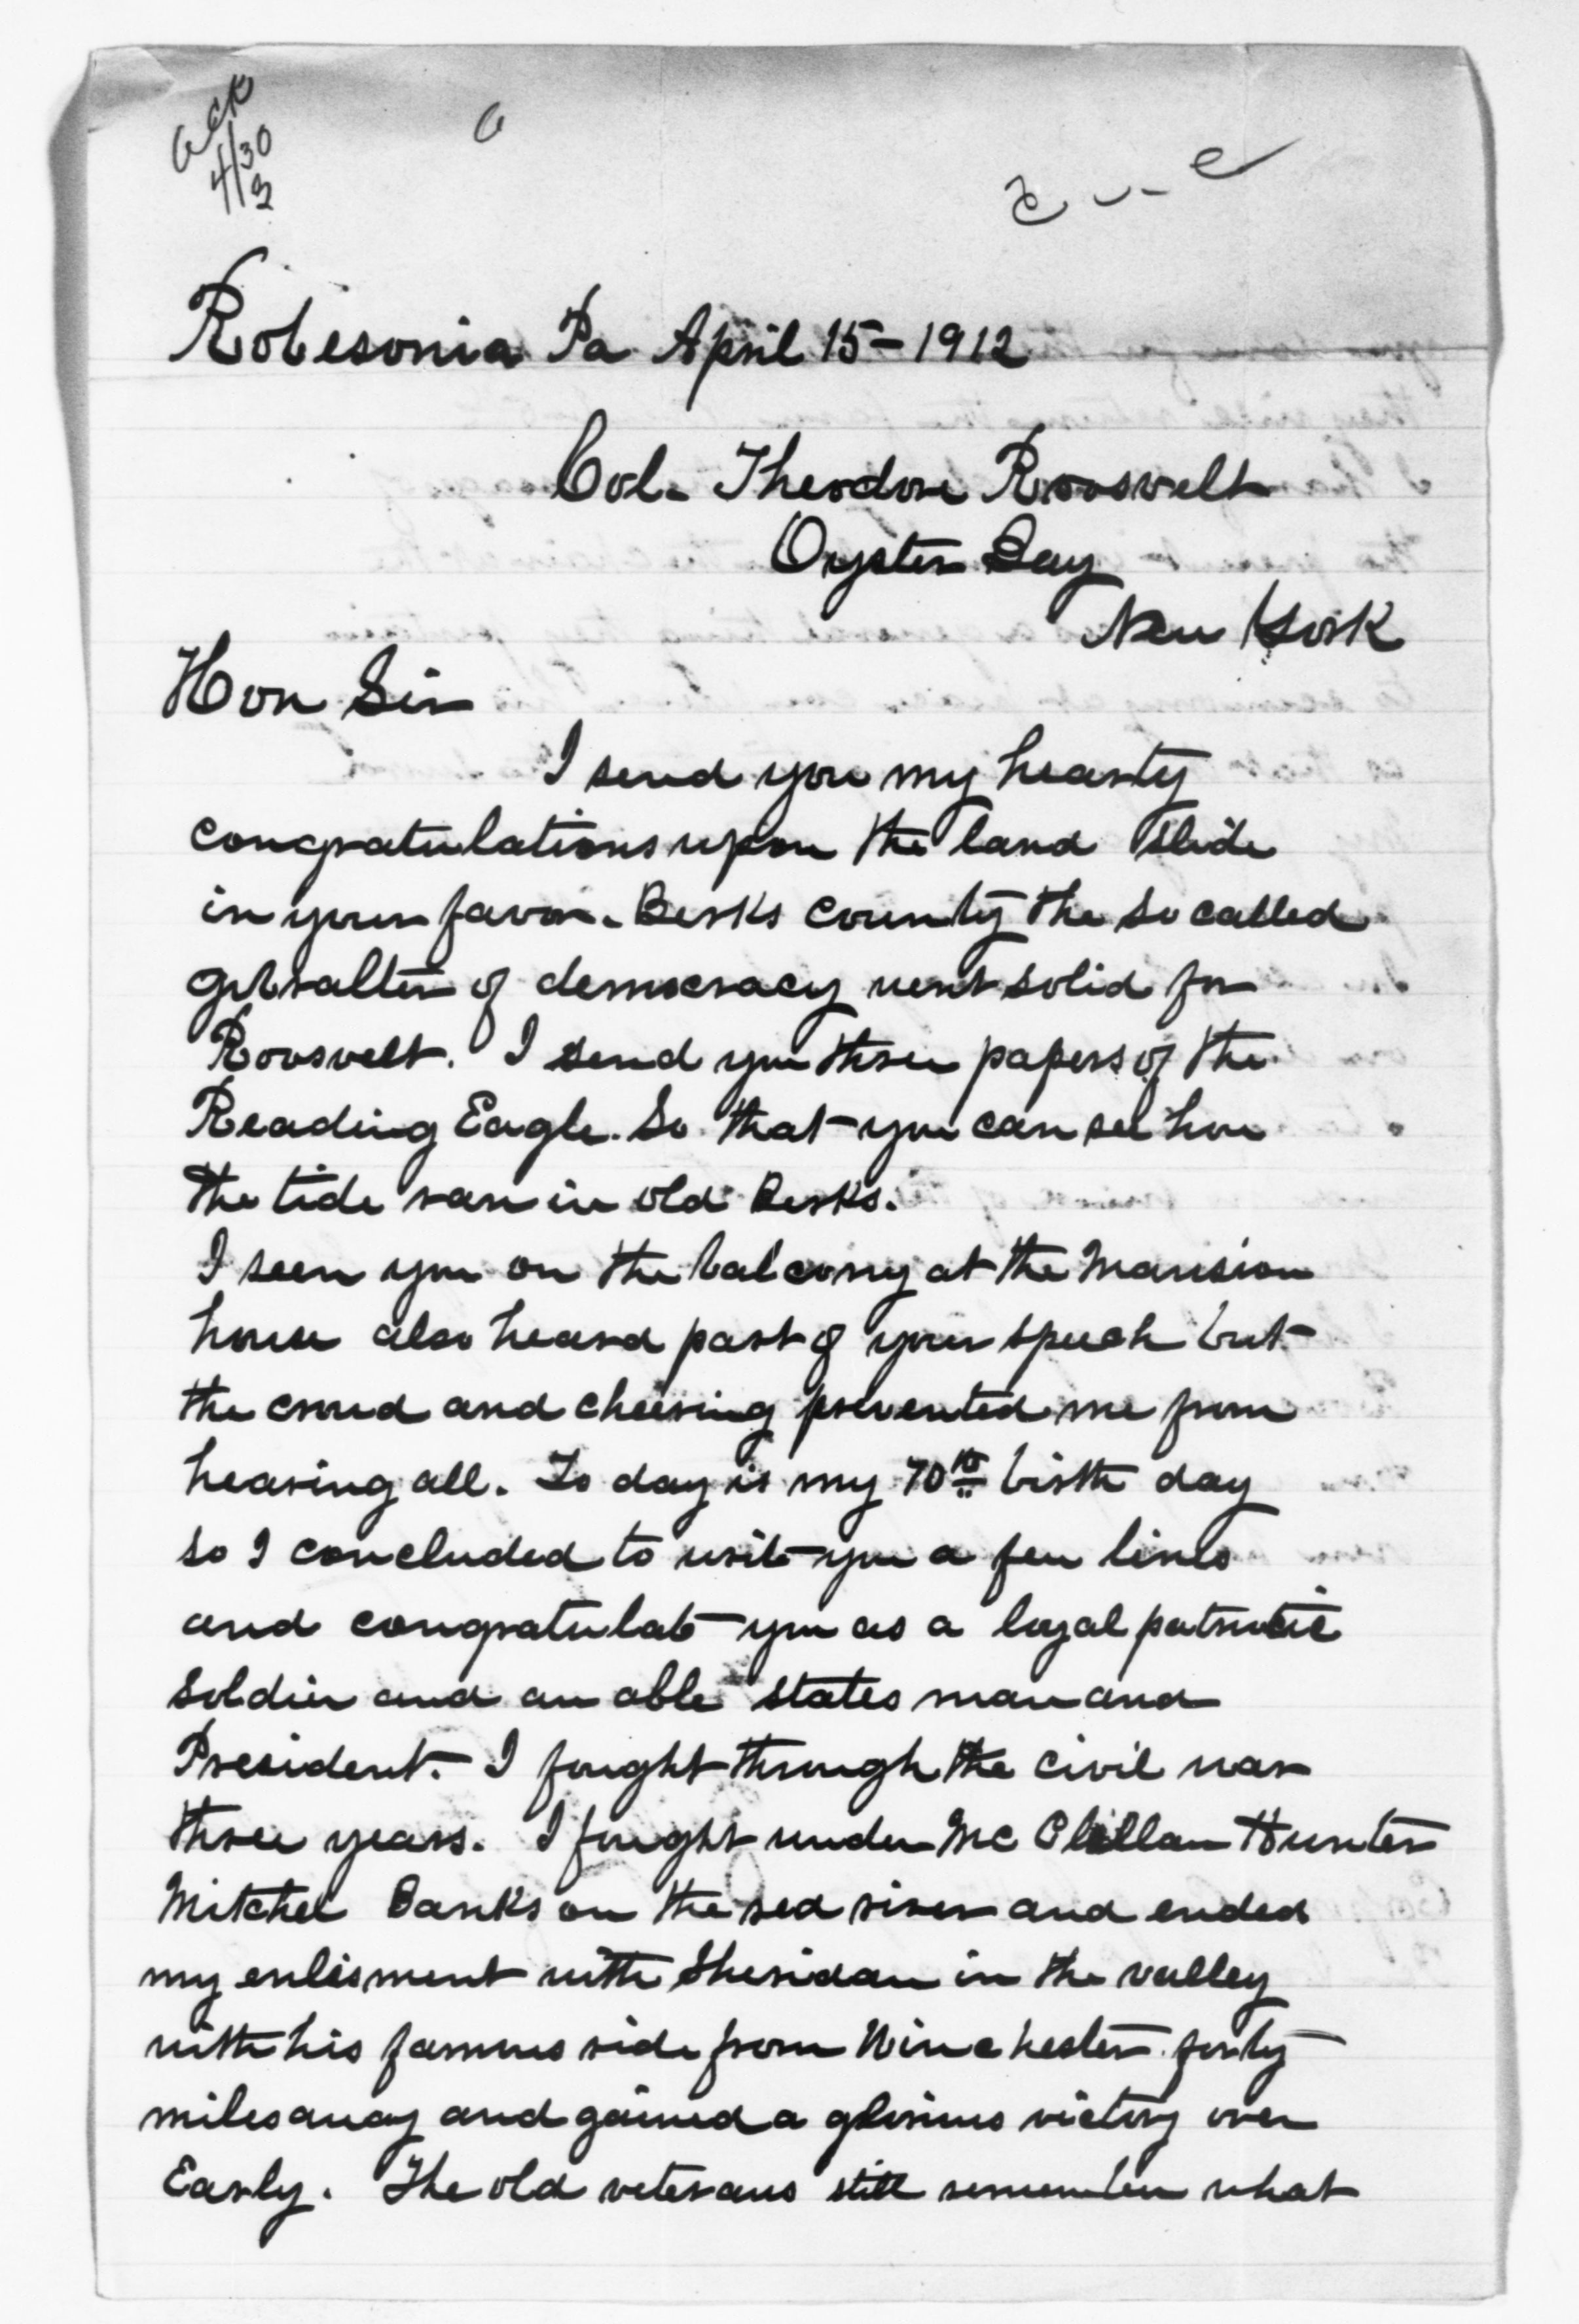 Ack
4/30
3
Robesonia Pa April 15 - 1912
Col. Theodore Roosvelt
Oyster Bay
New York
Hon Sir
I send you my hearty
congratulations upon the land slide
in your favor. Berks county the so called
gibralter of democracy went solid for
Roosvelt. I send you three papers of the
Reading Eagle. So that you can see how
the tide ran in old Berks.
I seen you on the balcony at the Mansion
house also heard part of your speech but
the crowd and cheering prevented me from
hearing all. To day is my 70th birth day
so I concluded to write you a few lines
and congratulate you as a loyal patriotic
soldier and an able states man and
President. I fought through the civil war
three years. I fought under Mc Clellan Hunter
Mitchel Banks on the red river and ended
my enlisment with Sheridan in the valley
with his famous ride from Winchester forty
miles away and gained a glorious victory over
Early. The old veterans still remember what